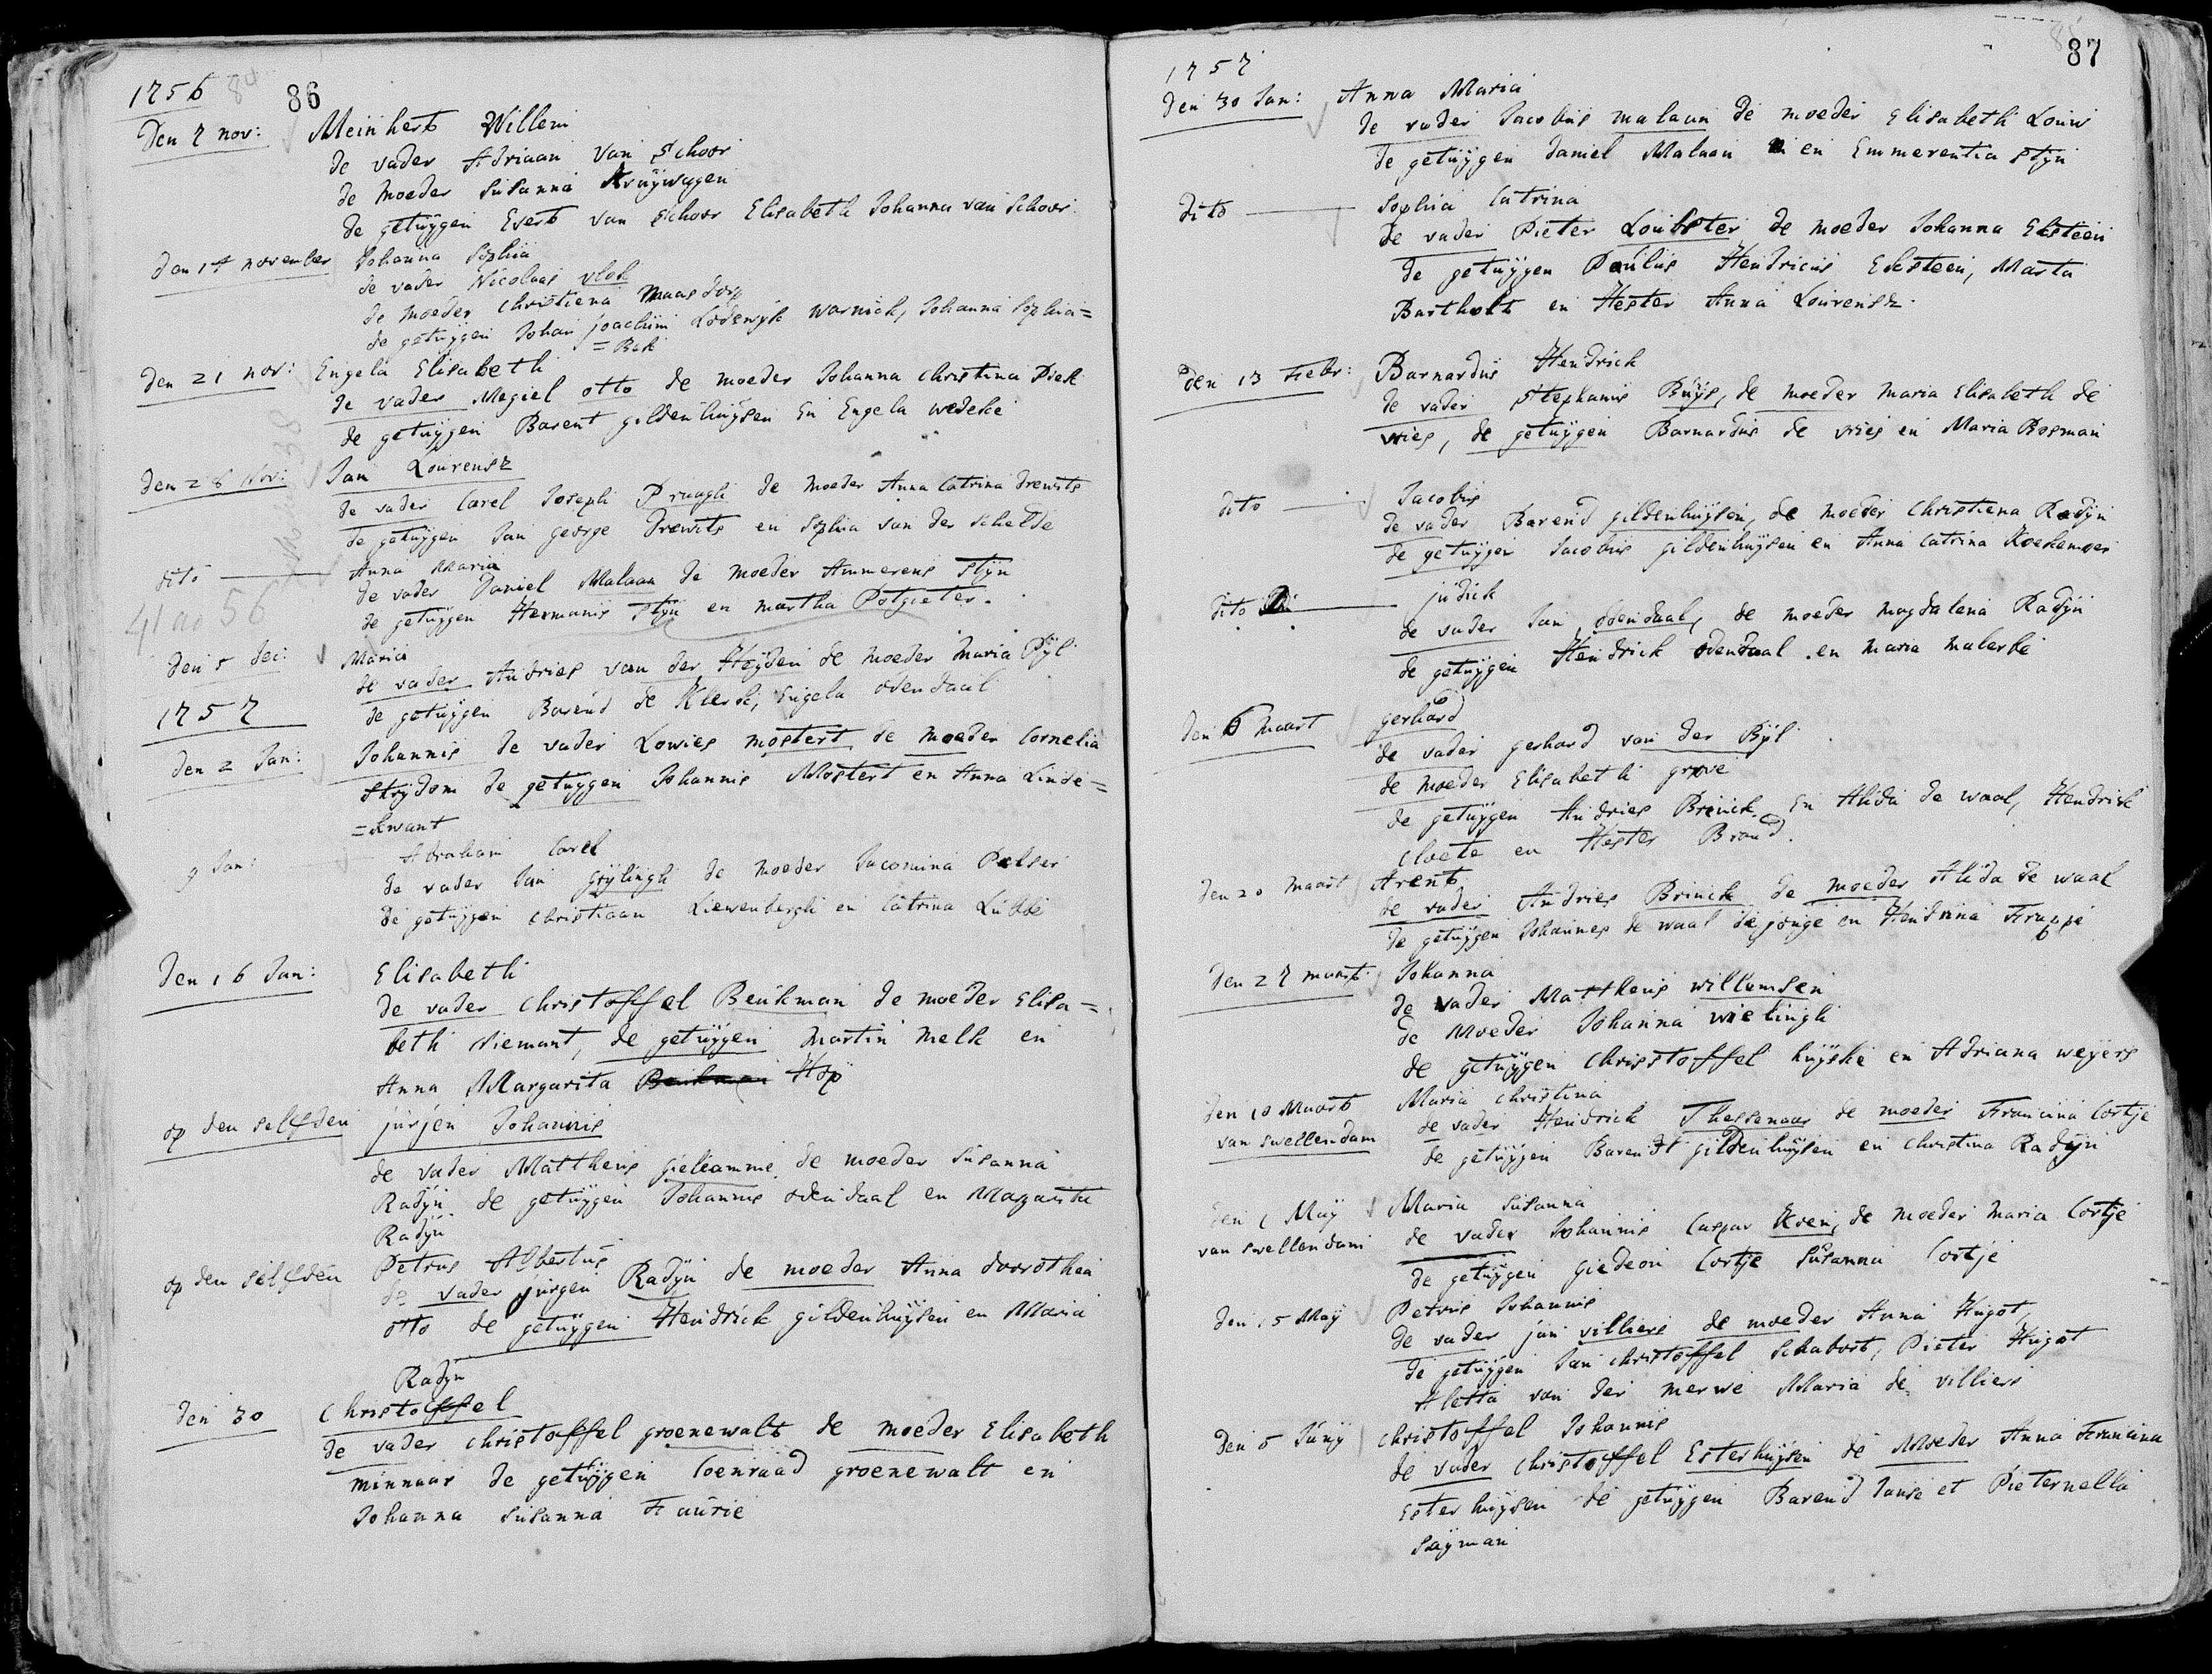 1756 84 86
Den 7 nov: Meinhert Willem
de vader Adriaan Van Schoor
de moeder Susanna Kruÿwagen
de getuÿgen Evert van Schoor Elisabeth Johanna van Schoor
den 14 november Johanna Sophia
de vader Nicolaas vlok
de moeder Christiena Maasdorp
de getuÿgen Johan Joachim Lodewÿk Warnick, Johanna Sophia=
=Bek
den 21 nov: Engela Elisabeth
de vader Megiel otto de moeder Johanna Christina Piek
de getuÿgen Barent gildenhuÿsen En Engela wedeke
den 28 Nov: Jan Lourensz
de vader Carel Joseph Pruagh de moeder Anna Catrina drewits
de getuÿgen Jan george Drewits en Sophia van der Schelde
dito Anna Maria
de vader Daniel Malaan de moeder Ammerens Stÿn
de getuÿgen Hermanis Stÿn en martha Potgieter.
41 ao 56
den 5 dec: Maria
de vader Andries van der Heÿden de moeder Maria Pÿl
1757 de getuÿgen Barend de Klerk, Engela odendaal
den 2 Jan: Johannis de vader Lowies mostert de moeder Cornelia
Strÿdom de getuÿgen Johannis Mostert en Anna Linde=
=kwant
9 Jan: Abraham Carel
de vader Jan Grÿlingh de moeder Jacomina Pelser
de getuÿgen Christiaan Liewenbergh en Catrina Lubbe
Den 16 Jan: Elisabeth
de vader Christoffel Beukman de moeder Elisa=
beth Niemant, de getuÿgen Martin Melk en
Anna Margarita Beukman Hop
op den selfden jurjen Johannis
de vader Mattheus Gieliamme de moeder Susanna
Radÿn de getuÿgen Johannis odendaal en Magarita
Radÿn
op den selfden Petrus Albertus
de vader jurgen Radÿn de moeder Anna dorothea
otto de getuÿgen Hendrick gildenhuÿsen en Maria
Radÿn
den 30 Christoffel
de vader Christoffel groenewalt de moeder Elisabeth
minnaar de getuÿgen Coenraad groenewalt en
Johanna Susanna Faurie
87
1757
Den 30 Jan: Anna Maria
de vader Jacobus malaan de moeder Elisabeth Louw
de getuÿgen Daniel Malaan en Emmerentia Stÿn
dito Sophia Catrina
de vader Pieter Loubster de moeder Johanna Eksteen
de getuÿgen Paulus Hendricus Eksteen, Marta
Bartholt en Hester Anna Lourensz.
Den 13 Febr: Barnardus Hendrick
de vader Stephanis Buÿs, de moeder Maria Elisabeth de
vries, de getuÿgen Barnardus de vries en Maria Bosman
dito Jacobus
de vader Barend gildenhuÿsen, de moeder Christiena Radÿn
de getuÿgen Jacobus gildenhuÿsen en Anna Catrina Koekemoer
dito judick
de vader Jan odendaal, de moeder magdalena Radÿn
de getuÿgen Hendrick odendaal en maria malerbe
den 6 maart gerhard
de vader gerhard van der Bÿl
de moeder Elisabeth grove
de getuÿgen Andries Brinck En Alida de waal, Hendrick
Cloete en Hester Brand.
den 20 maart Arent
de vader Andries Brinck de moeder Alida de waal
de getuÿgen Johannes de waal de jonge en Hendrina Frappe
den 27 maart Johanna
de vader Mattheus willemsen
de moeder Johanna wielingh
de getuÿgen Christoffel huÿske en Adriana weÿers
den 10 Maart Maria Christina
van Swellendam de vader Hendrick Thessenaar de moeder Francina Cortje
de getuÿgen Barendt gildenhuÿsen en Christina Radÿn
den 1 Maÿ Maria Susanna
van Swellendam de vader Johannis Caspar Kren, de moeder Maria Cortje
de getuÿgen giedeon Cortje Susanna Cortje
den 15 Maÿ Petrus Johannis
de vader jan villiers de moeder Anna Hugot
de getuÿgen Jan Christoffel Schabort, Pieter Hugot
Aletta van der merwe Maria de villiers
den 5 Junÿ Christoffel Johannis
de vader Christoffel Esterhuÿsen de Moeder Anna Francina
Esterhuÿsen de getuÿgen Barend Janse et Pieternella
Saÿman